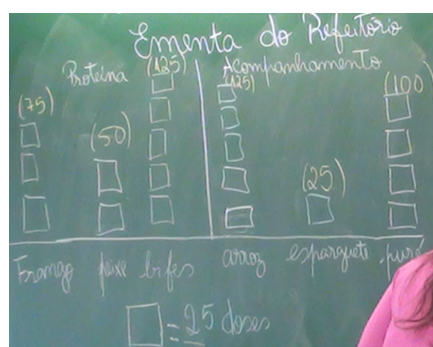 Ementa do Refeitório
Proteína (125) Acompanhamento
(75) (50) (125) (25) (100)
Frango peixe bifes arroz esparguete puré
= 25 doses